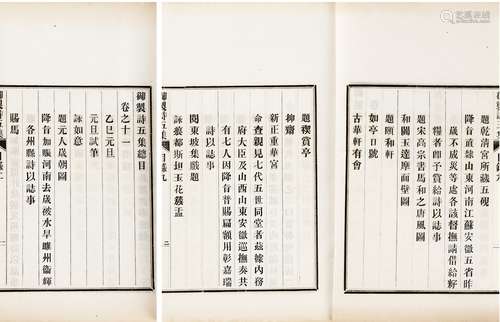 御製詩五集總目
卷之十一
乙巳元旦
元旦試筆
詠如意
題元人歲朝圖
降旨加賑河南去歲被水旱睢州衞輝
各州縣詩以誌事
賜馬
題禊賞亭
柳齋
新正重華宮
命查親見七代五世同堂者茲據內務
府大臣及山西山東安徽巡撫奏共
有七人因降旨普賜扁額用彰嘉瑞
詩以誌事
閱東坡集戲題
詠痕都斯坦玉花觚盂
題乾清宮所藏五硯
降旨普賑山東河南江蘇安徽五省昨
歲不成災等處各該督撫請借給籽
糧者即予賞給詩以誌事
題宋高宗書馬和之唐風圖
和闐玉達摩面壁圖
題頤和軒
如亭口號
古華軒有會